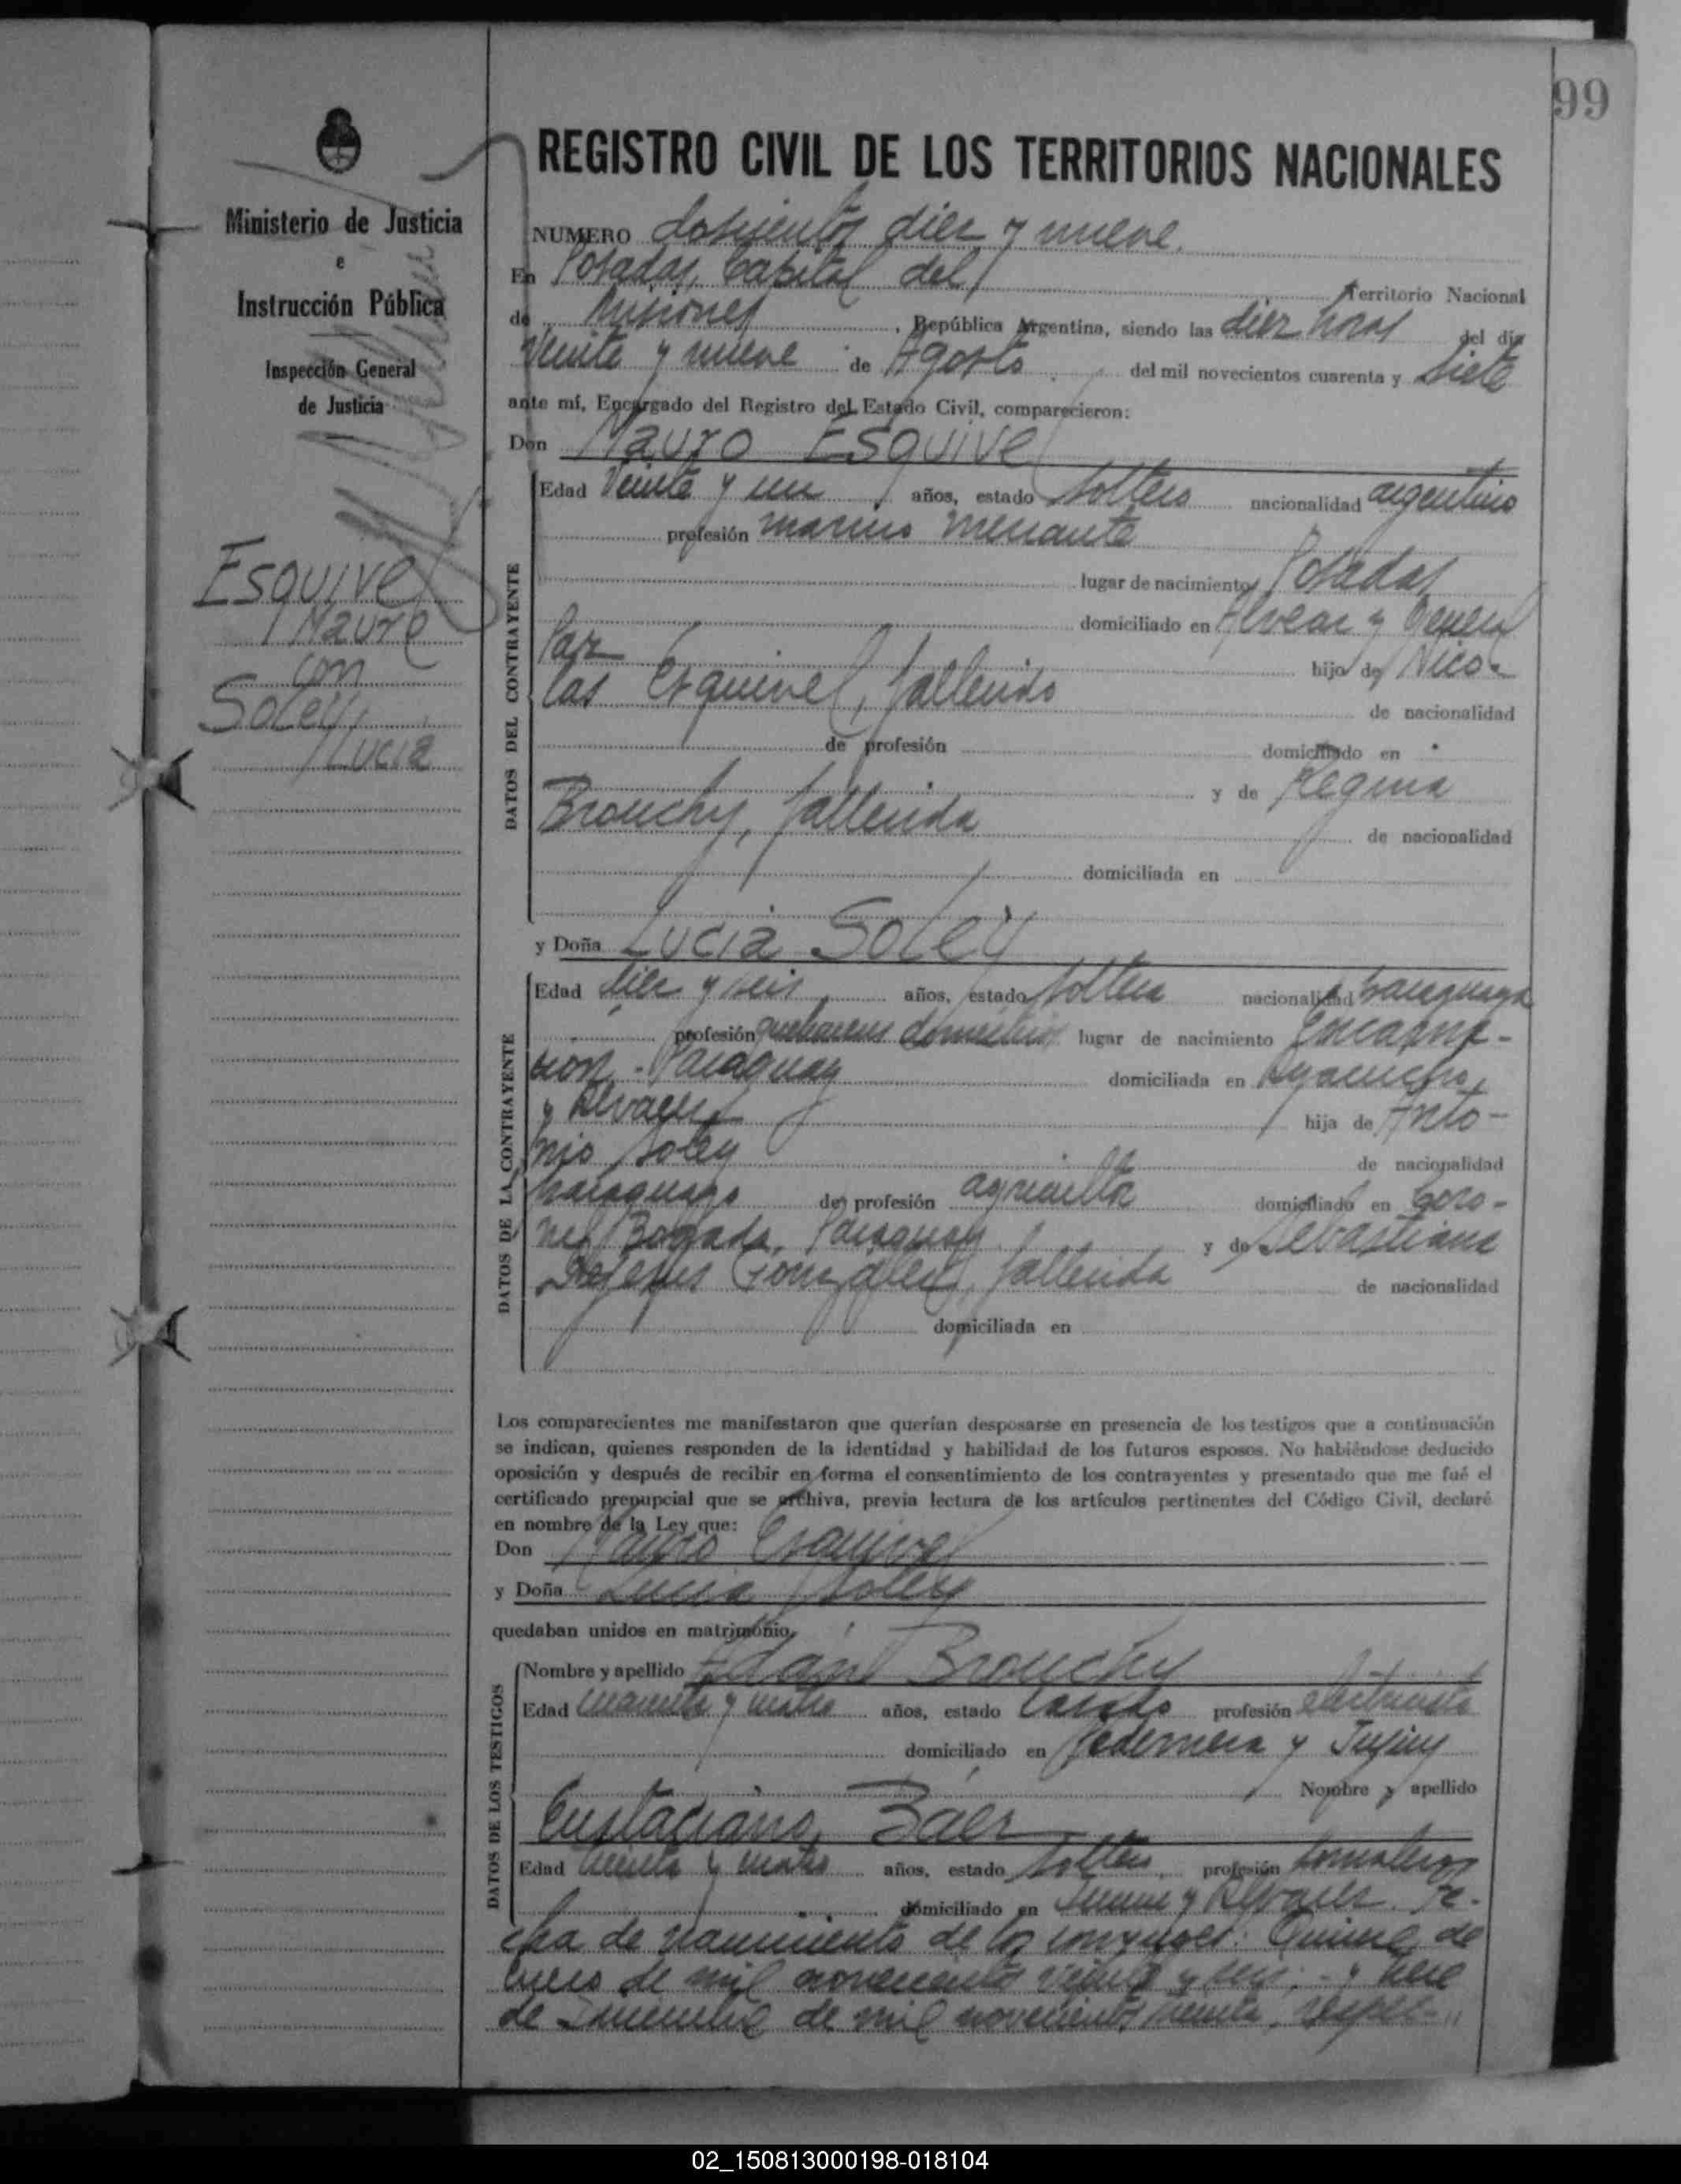 99
Ministerio de Justicia
e
Instrucción Pública
Inspección General
de Justicia
Esquivel
Mauro
con
Soley,
Lucia
REGISTRO CIVIL DE LOS TERRITORIOS NACIONALES
NUMERO dosientos diez y nueve.
En Posadas, Capital del Territorio Nacional
de Misiones, República Argentina, siendo las diez horas del día
Veinte y nueve de Agosto del mil novecientos cuarenta y siete
ante mí, Encargado del Registro del Estado Civil, comparecieron:
Don Mauro Esquivel
DATOS DEL CONTRAYENTE
Edad Veinte y un años, estado soltero nacionalidad argentino
profesión marino mercante
lugar de nacimiento Posadas
domiciliado en Alvear y General
Paz hijo de Nico-
las Esquivel, fallecido de nacionalidad
de profesión domiciliado en
y de Regina
Brouchy, fallecida de nacionalidad
domiciliada en
y Doña Lucia Soley
DATOS DE LA CONTRAYENTE
Edad diez y seis años, estado soltera nacionalidad paraguaya
profesión quehaceres domésticos lugar de nacimiento Encarna-
cion - Paraguay domiciliada en Ayacucho,
y hija de Anto-
nio Soley de nacionalidad
paraguayo de profesión agricultor domiciliado en Coro-
nel Bogado, Paraguay y de Sebastiana
Dejesus González, fallecida de nacionalidad
domiciliada en
Los comparecientes me manifestaron que querían desposarse en presencia de los testigos que a continuación
se indican, quienes responden de la identidad y habilidad de los futuros esposos. No habiéndose deducido
oposición y después de recibir en forma el consentimiento de los contrayentes y presentado que me fué el
certificado prenupcial que se archiva, previa lectura de los artículos pertinentes del Código Civil, declaré
en nombre de la Ley que:
Don Mauro Esquivel
y Doña Lucia Soley
quedaban unidos en matrimonio.
DATOS DE LOS TESTIGOS
Nombre y apellido Adán Brouchy
Edad cuarenta y cuatro años, estado casado profesión electricista
domiciliado en Pedernera y Jujuy
Nombre y apellido
Eustaciano Báez
Edad treinta y cuatro años, estado soltero, profesión jornalero
domiciliado en y Fe-
cha de nacimiento de los conyuges: Quince de
Enero de mil novecientos veinte y seis - y trece
de Diciembre de mil novecientos treinta, respec-
02_150813000198-018104